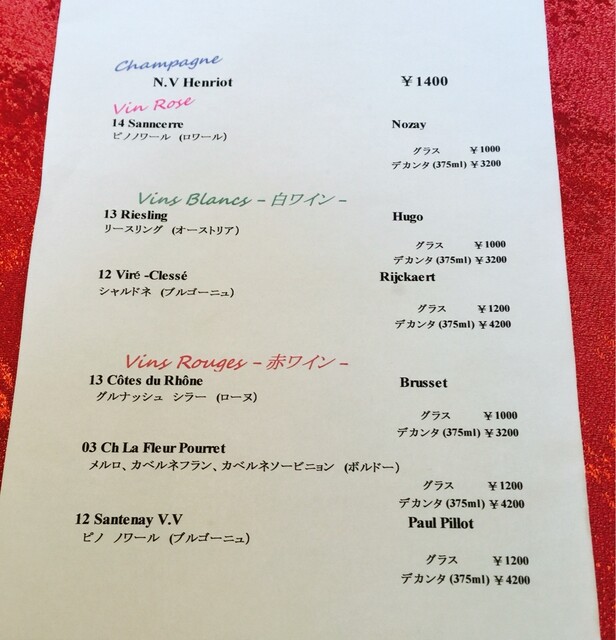 Champagne
N.V Henriot ￥1400
Vin Rose
14 Sanncerre Nozay
ピノノワール（ロワール）
グラス ￥1000
デカンタ (375ml) ￥3200
Vins Blancs – 白ワイン –
13 Riesling Hugo
リースリング （オーストリア）
グラス ￥1000
デカンタ (375ml) ￥3200
12 Viré -Clessé Rijckaert
シャルドネ （ブルゴーニュ）
グラス ￥1200
デカンタ (375ml) ￥4200
Vins Rouges – 赤ワイン –
13 Côtes du Rhône Brusset
グルナッシュ シラー （ローヌ）
グラス ￥1000
デカンタ (375ml) ￥3200
03 Ch La Fleur Pourret
メルロ、カベルネフラン、カベルネソービニョン （ボルドー）
グラス ￥1200
デカンタ (375ml) ￥4200
12 Santenay V.V Paul Pillot
ピノ ノワール （ブルゴーニュ）
グラス ￥1200
デカンタ (375ml) ￥4200